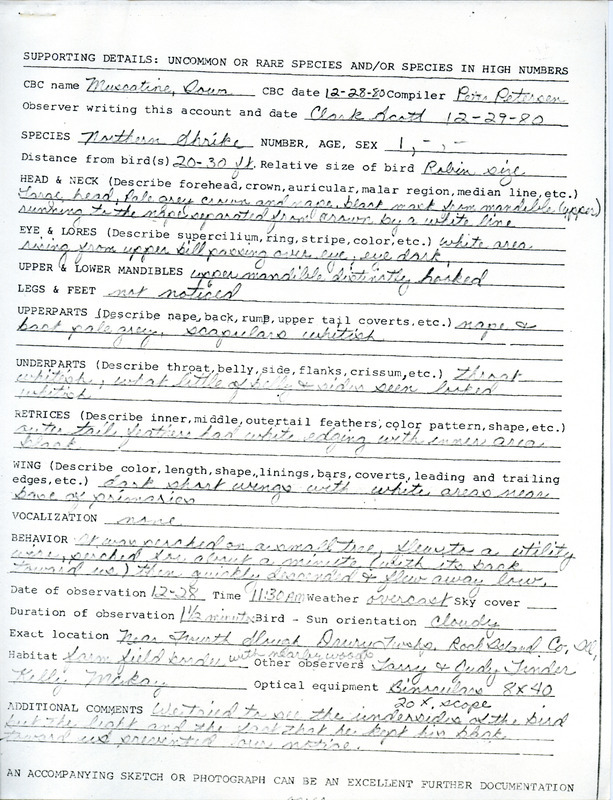 SUPPORTING DETAILS: UNCOMMON OR RARE SPECIES AND/OR SPECIES IN HIGH NUMBERS
CBC name Muscatine, Iowa CBC date 12-28-80 Compiler Pete Petersen
Observer writing this account and date Clark Scott 12-29-80
SPECIES Northern Shrike NUMBER, AGE, SEX 1, -, -
Distance from bird(s) 20-30 ft. Relative size of bird Robin size
HEAD & NECK (Describe forehead, crown, auricular, malar region, median line, etc.)
Large head, Pale grey crown and nape, black mask from mandible (upper)
running to the nape separated from crown by a white line
EYE & LORES (Describe supercilium, ring, stripe, color, etc.) white area
rising from upper bill passing over eye, eye dark,
UPPER & LOWER MANDIBLES upper mandible distinctly hooked
LEGS & FEET not noticed
UPPERPARTS (Describe nape, back, rump, upper tail coverts, etc.) nape &
back pale grey, scapulars whitish
UNDERPARTS (Describe throat, belly, side, flanks, crissum, etc.) throat
whitish, what little of belly & sides seen looked
whitish
RETRICES (Describe inner, middle, outertail feathers, color pattern, shape, etc.)
outer tail feathers had white edging with inner area
black
WING (Describe color, length, shape, linings, bars, coverts, leading and trailing
edges, etc.) dark short wings with white areas near
base of primaries
VOCALIZATION none
BEHAVIOR It was perched on a small tree, flew to a utility
wire, perched for about a minute (with its back
toward us) then quickly descended & flew away low.
Date of observation 12-28 Time 11:30 AM Weather overcast Sky cover
Duration of observation 1 1/2 minutes Bird - Sun orientation Cloudy
Exact location Near Fourth Slough Drury Twshp. Rock Island Co., Ill,
Habitat Farm field border with nearby woods Other observers Larry & Judy Linder
Kelly McKay Optical equipment Binoculars 8X40
20 X. scope
ADDITIONAL COMMENTS We tried to see the undersides of the bird
but the light and the fact that he kept his back
toward us prevented our notice.
AN ACCOMPANYING SKETCH OR PHOTOGRAPH CAN BE AN EXCELLENT FURTHER DOCUMENTATION